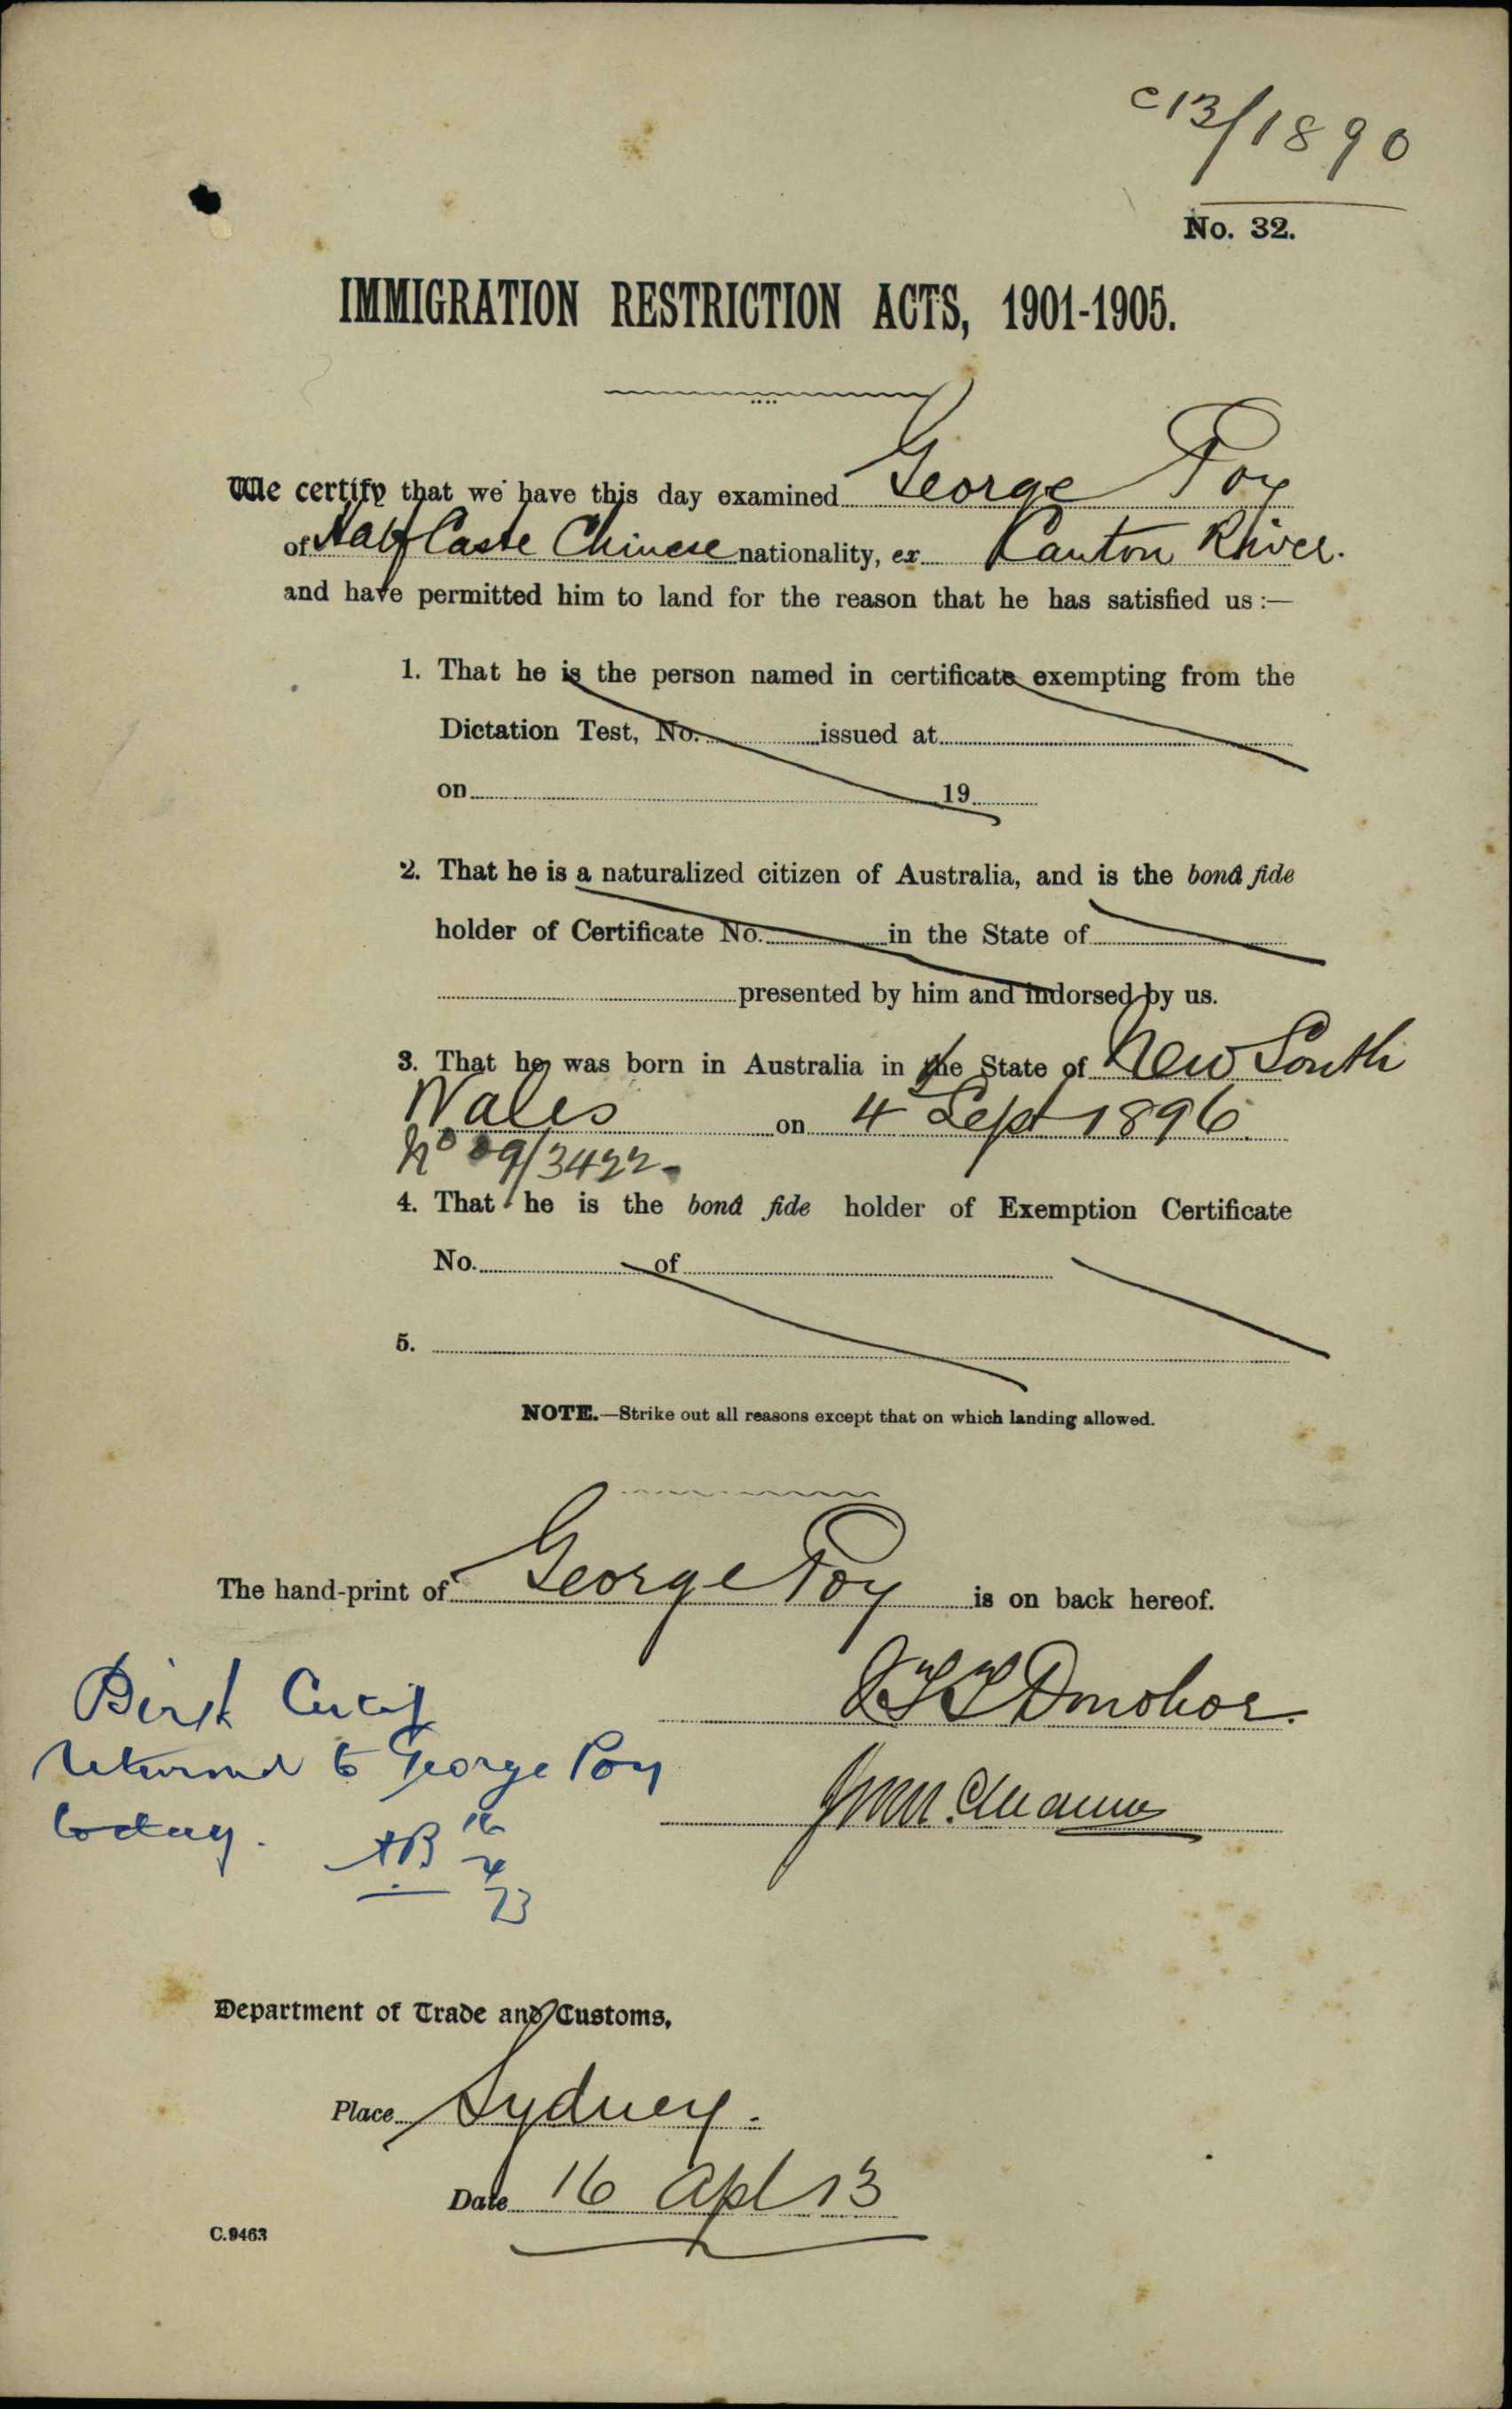 C13/1890
No. 32.
IMMIGRATION RESTRICTION ACTS, 1901-1905.
We certify that we have this day examined George Poy
of Half Caste Chinese nationality, ex Kanton River.
and have permitted him to land for the reason that he has satisfied us :—
1. That he is the person named in certificate exempting from the
Dictation Test, No. issued at
on 19
2. That he is a naturalized citizen of Australia, and is the bonâ fide
holder of Certificate No. in the State of
presented by him and indorsed by us.
3. That he was born in Australia in the State of New South
Wales on 4 Sept 1896.
No 09/3422
4. That he is the bonâ fide holder of Exemption Certificate
No. of
5.
NOTE.—Strike out all reasons except that on which landing allowed.
The hand-print of George Poy is on back hereof.
Donohoe
Birth Certif
returned to George Poy
today. AB 16
4
13
Department of Trade and Customs,
Place Sydney.
Date 16 Apl 13
C.9463